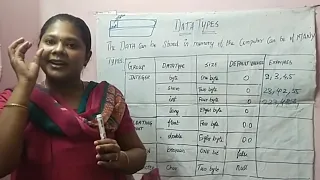 DATA TYPES
The DATA can be stored in memory of the computer can be of MANY
TYPES
GROUP DATATYPE SIZE DEFAULT VALUES EXAMPLES
INTEGER byte One byte 0 2,3,4,5
short Two byte 0
int Four byte 0
long Eight byte 0
float Four byte 0.0
double Eight byte 0.0
Boolean ONE bit false
Char Two byte Null